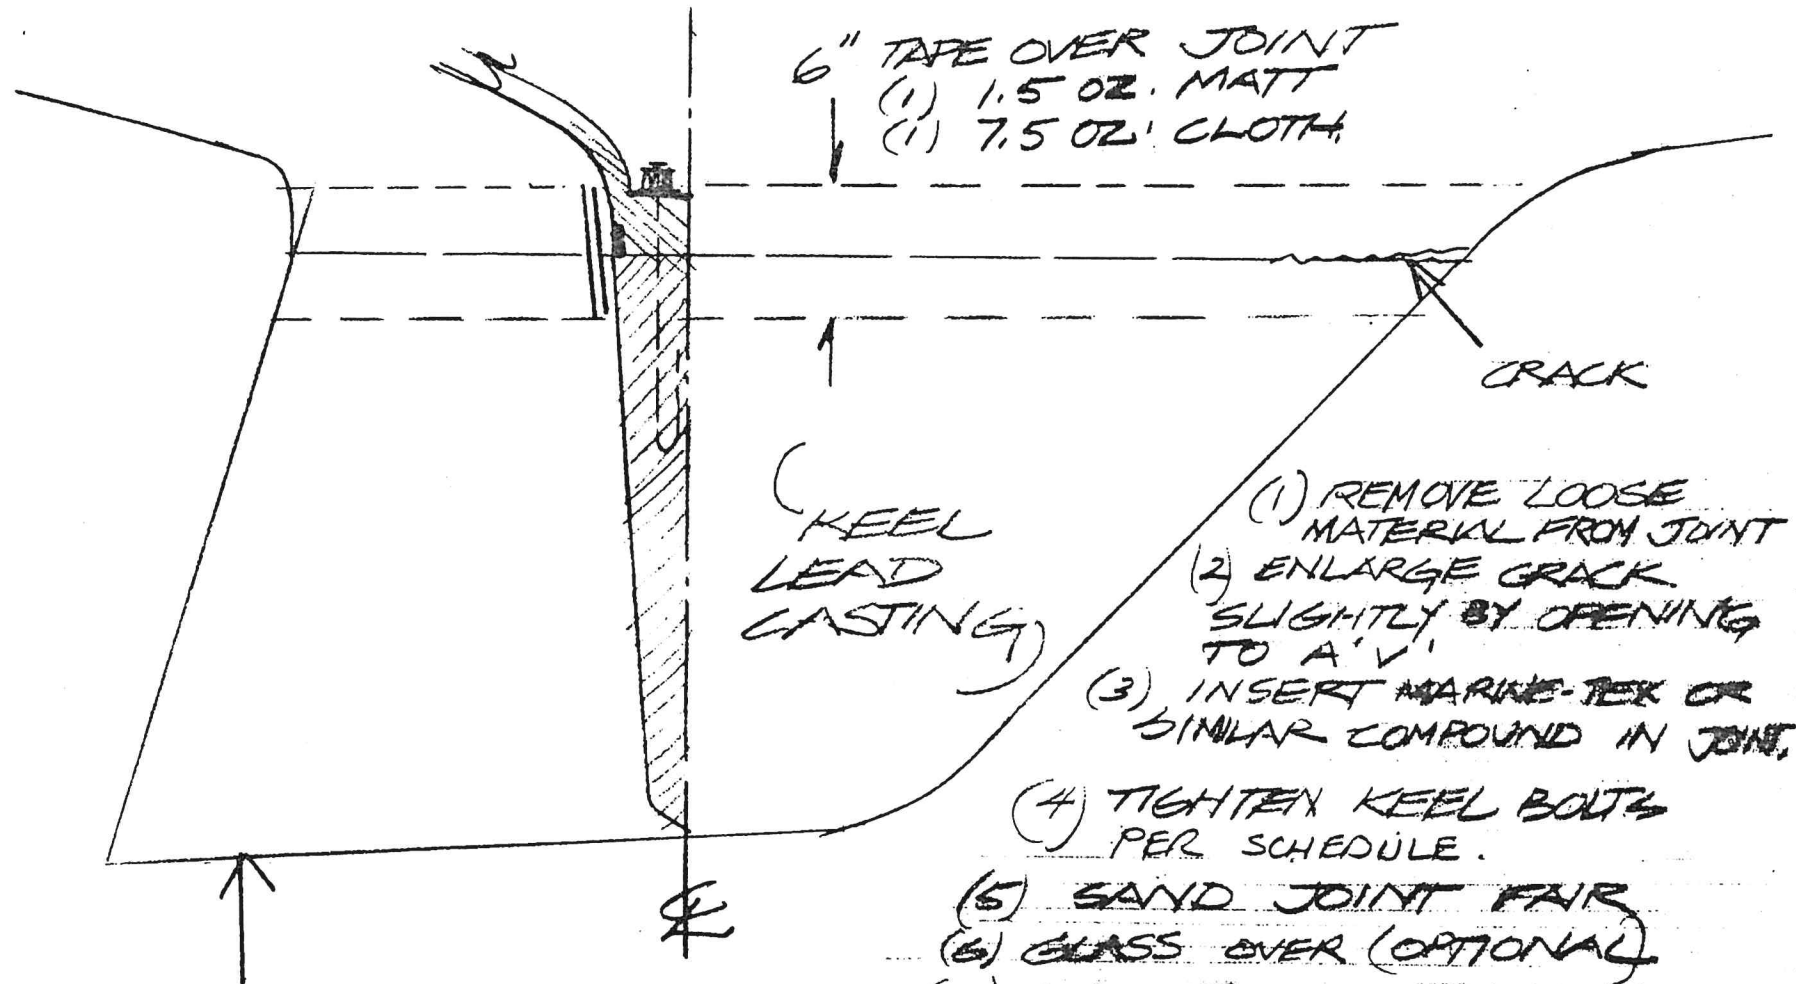 6" TAPE OVER JOINT
(1) 1.5 OZ. MATT
(1) 7.5 OZ. CLOTH.
CRACK
KEEL
LEAD
CASTING
(1) REMOVE LOOSE
MATERIAL FROM JOINT
(2) ENLARGE CRACK
SLIGHTLY BY OPENING
TO A 'V'
(3) INSERT MARINE-TEX OR
SIMILAR COMPOUND IN JOINT.
(4) TIGHTEN KEEL BOLTS
PER SCHEDULE.
(5) SAND JOINT FAIR
(6) GLASS OVER (OPTIONAL)
℄